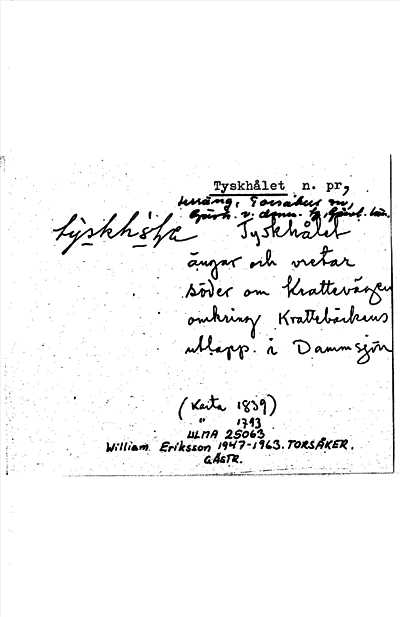 Tyskhålet n. pr,
terräng, Torsåkers sn,
Gästr. v. doms. Gävl. län.
Tyskhålet
ängar och vretar
söder om Krattevägen
omkring Krattebäckens
utlopp i Dammsjön
(Karta 1839)
" 1793
ULMA 25063
William Eriksson 1947-1963. TORSÅKER.
GÄSTR.